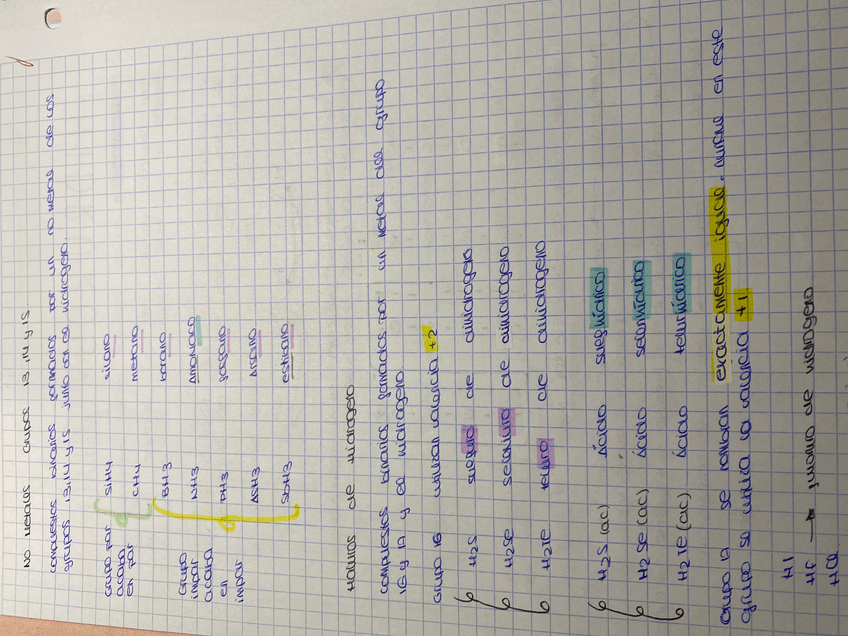 NO METALES GRUPOS 13, 14 Y 15
compuestos binarios formados por un no metal de los
grupos 13, 14 y 15 junto con el hidrogeno.
Grupo par
acaba
en par
SiH4 silano
CH4 metano
Grupo
impar
acaba
en
impar
BH3 borano
NH3 Amoniaco
PH3 fosfano
ASH3 Arsano
SbH3 estibano
Haluros de hidrogeno
compuestos binarios formados por un metal del grupo
16 y 17 y el hidrogeno
Grupo 16 utilizan valencia +2
H2S sulfuro de dihidrogeno
H2Se seleniuro de dihidrogeno
H2Te teluro de dihidrogeno
H2S (ac) Ácido sulfhídrico
H2Se (ac) Ácido selenhídrico
H2Te (ac) Ácido telurhídrico
Grupo 17 se nombran exactamente igual. Aunque en este
grupo se utiliza la valencia +1
HI
HF → fluoruro de hidrogeno
HCl